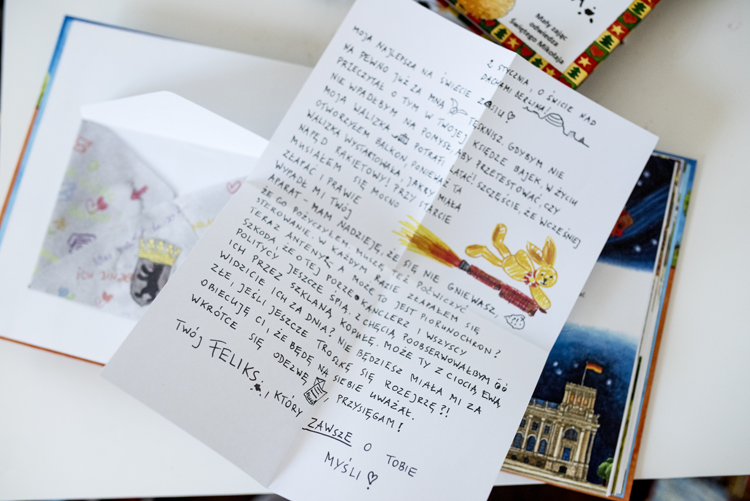 Mały zając
odwiedza
Świętego Mikołaja
2 STYCZNIA, O ŚWICIE NAD
DACHAMI BERLINA
MOJA NAJLEPSZA NA ŚWIECIE ZOSIU ♡
NA PEWNO JUŻ ZA MNĄ TĘSKNISZ. GDYBYM NIE
PRZECZYTAŁ O TYM W TWOJEJ KSIĘDZE BAJEK, W ŻYCIU
NIE WPADŁBYM NA POMYSŁ, ABY PRZETESTOWAĆ, CZY
MOJA WALIZKA POTRAFI LATAĆ! SZCZĘŚCIE, ŻE WCZEŚNIEJ
OTWORZYŁEM BALKON, PONIEWAŻ TA
WALIZKA WYSTARTOWAŁA, JAKBY MIAŁA
NAPĘD RAKIETOWY! PRZY STARCIE
MUSIAŁEM SIĘ MOCNO
ZŁAPAĆ I PRAWIE
WYPADŁ MI TWÓJ
APARAT – MAM NADZIEJĘ, ŻE SIĘ NIE GNIEWASZ,
ŻE GO POŻYCZYŁEM. MUSZĘ TEŻ POĆWICZYĆ
STEROWANIE, W KAŻDYM RAZIE ZŁAPAŁEM SIĘ
TERAZ ANTENY, A MOŻE TO JEST PIORUNOCHRON?
SZKODA, ŻE O TEJ PORZE KANCLERZ I WSZYSCY
POLITYCY JESZCZE ŚPIĄ. Z CHĘCIĄ POOBSERWOWAŁBYM
ICH PRZEZ SZKLANĄ KOPUŁĘ. MOŻE TY Z CIOCIĄ EWĄ
WIDZICIE ICH ZA DNIA? NIE BĘDZIESZ MIAŁA MI ZA
ZŁE, JEŚLI JESZCZE TROSZKĘ SIĘ ROZEJRZĘ?!
OBIECUJĘ CI, ŻE BĘDĘ NA SIEBIE UWAŻAŁ.
WKRÓTCE SIĘ ODEZWĘ, PRZYSIĘGAM!
TWÓJ FELIKS, KTÓRY ZAWSZE O TOBIE
MYŚLI ♡